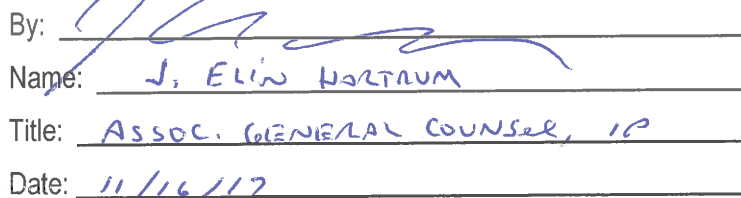 By:
Name: J. ELIN HARTRUM
Title: ASSOC. GENERAL COUNSEL, IP
Date: 11/16/17